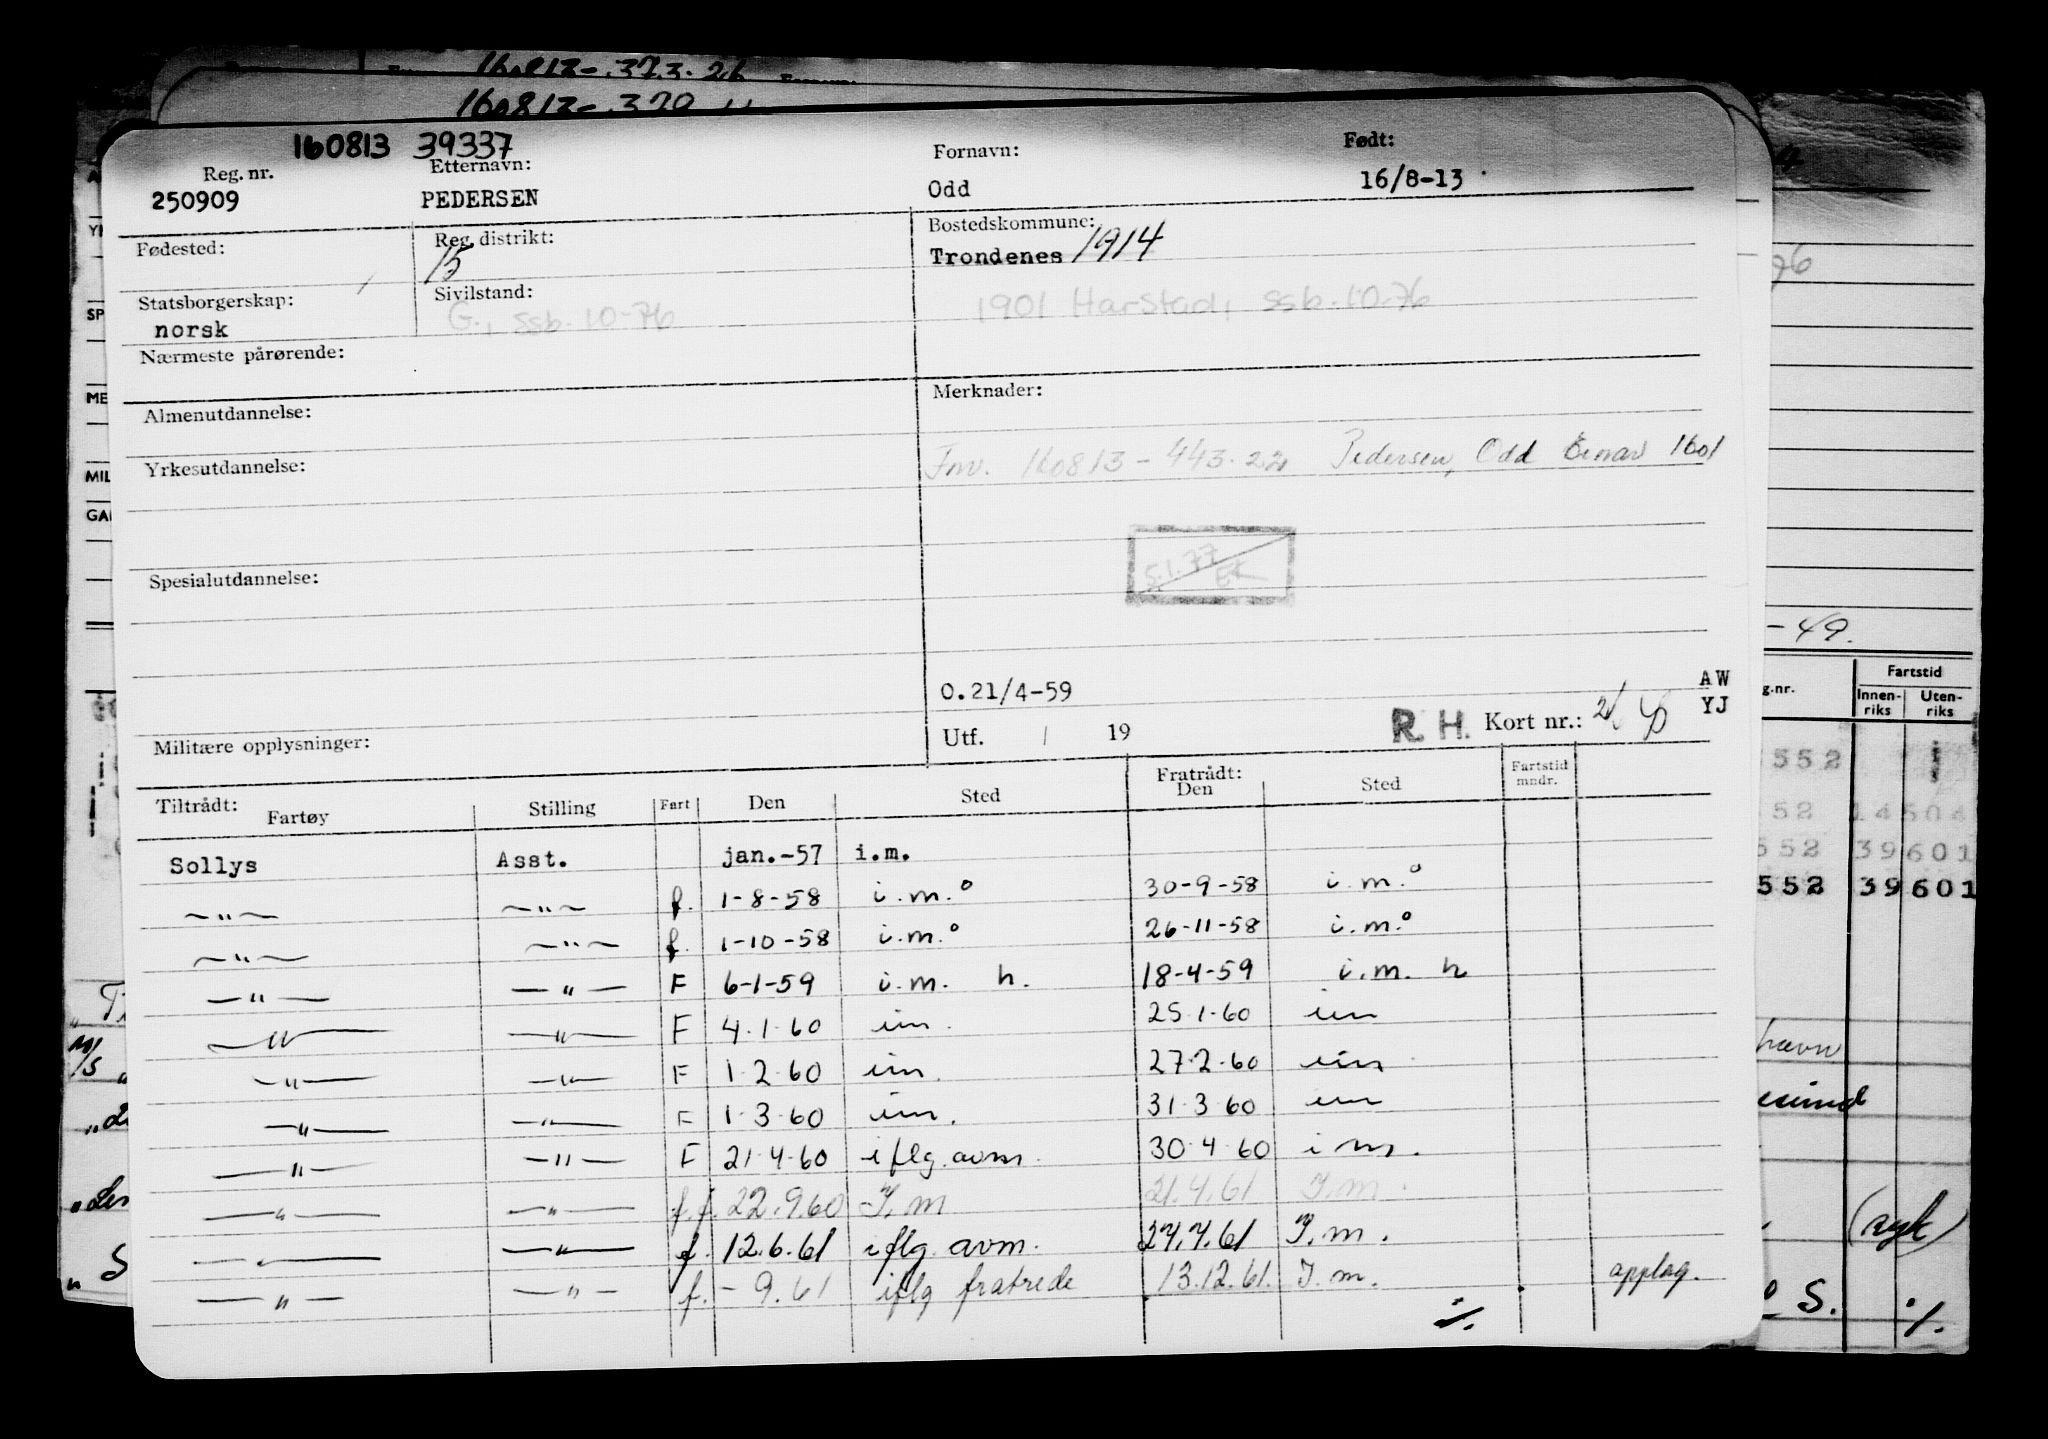 160813-373.26
160813-370
160813 39337
Reg. nr. Etternavn: Fornavn: Født:
250909 PEDERSEN Odd 16/8-13
Fødested: Reg. distrikt: 15 Bostedskommune:
Trondenes 1914
Statsborgerskap: norsk Sivilstand: G., ssb. 10-76 1901 Harstad, ssb. 10-76
Nærmeste pårørende:
Almenutdannelse: Merknader:
Yrkesutdannelse: Fnr. 160813-443.22 Pedersen, Odd Einar 1601
5.1.77
Spesialutdannelse:
O.21/4-59 AW
Militære opplysninger: Utf. / 19 R. H. Kort nr.: YJ
Tiltrådt: Fartøy Stilling Fart Den Sted Fratrådt: Den Sted Fartstid mndr.
Sollys Asst. jan.-57 i.m.
—"— —"— f. 1-8-58 i.m.° 30-9-58 i.m.°
—"— —"— f. 1-10-58 i.m.° 26-11-58 i.m.°
—"— —"— F 6-1-59 i.m. h. 18-4-59 i.m. h
—"— —"— F 4.1.60 im. 25.1.60 im
—"— —"— F 1.2.60 im. 27.2.60 im
—"— —"— F 1.3.60 im. 31.3.60 im
—"— —"— F 21.4.60 iflg. avm. 30.4.60 i m.
—"— —"— f.f. 22.9.60 I.m 21.4.61 I.m.
—"— —"— f. 12.6.61 iflg. avm. 27.7.61 I.m.
—"— —"— f. - 9.61 iflg fratrede 13.12.61. I.m. applag.
·/.
76
-49.
g.nr. Fartstid
Innen-riks Uten-riks
552
52 14504
552 39601
552 39601
havn
esund
(syk)
S. ·/.
M/S